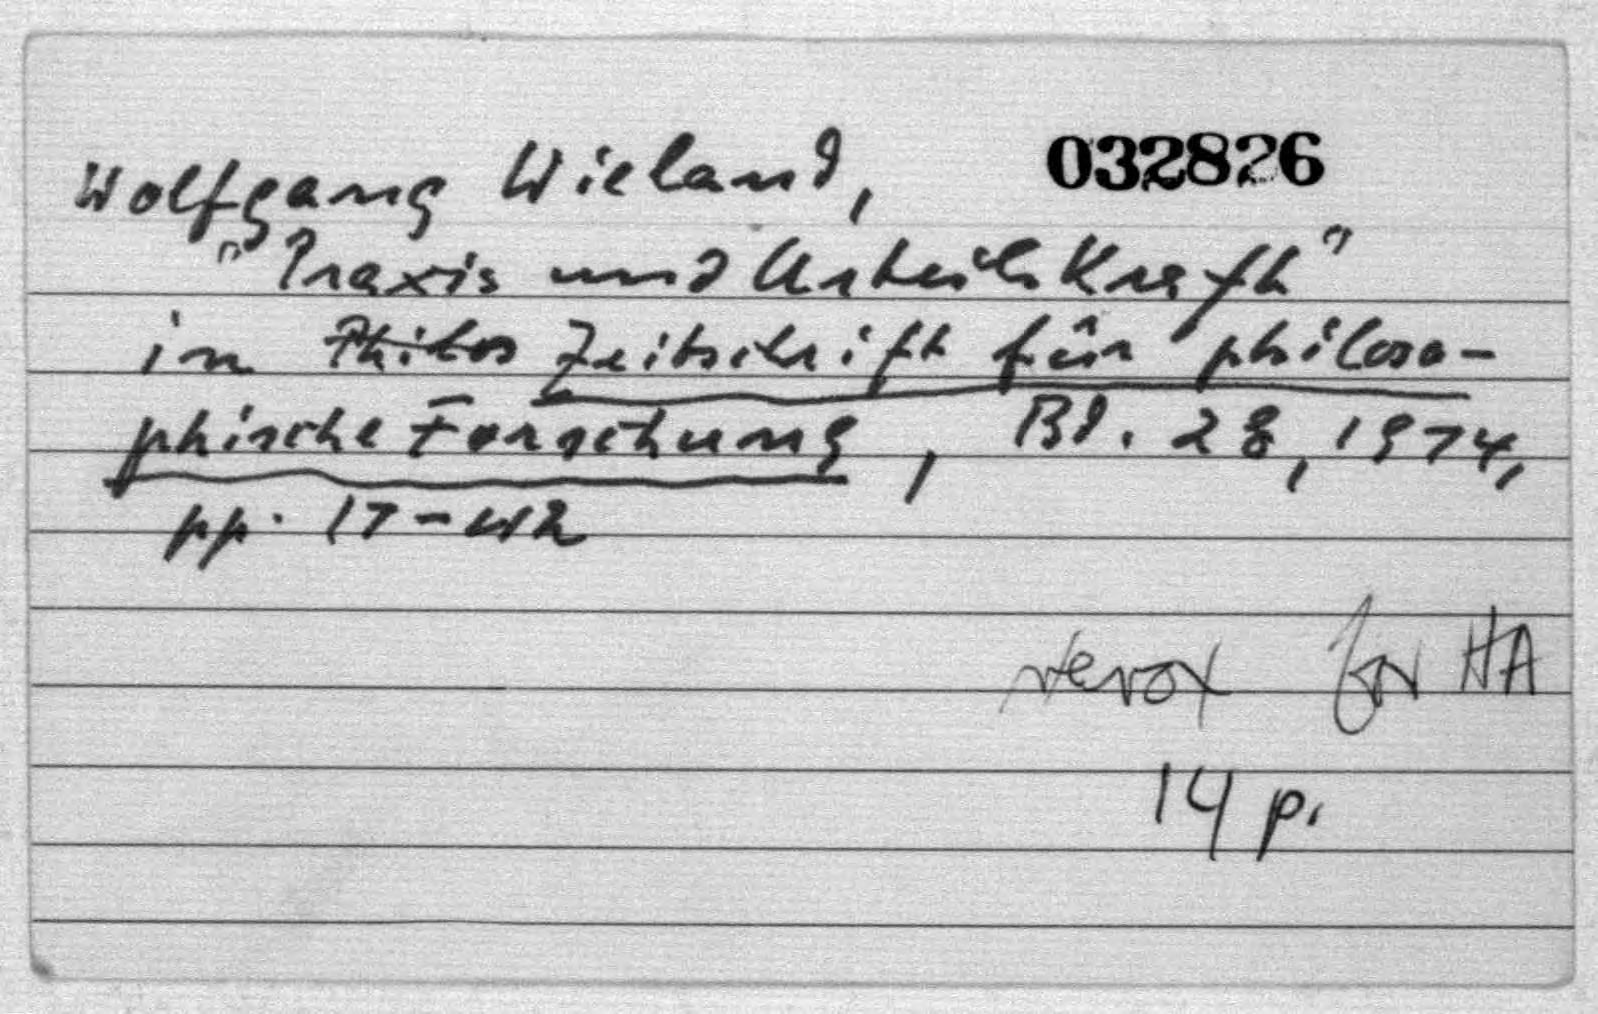 032826
Wolfgang Wieland,
"Praxis und Urteilskraft"
in Philos Zeitschrift für philoso-
phische Forschung, Bd. 28, 1974,
pp. 17-42
xerox for HA
14 p.